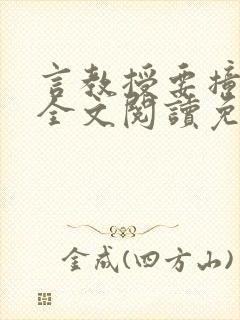 言教授要撞
全文閱讀免
金成(四方山)